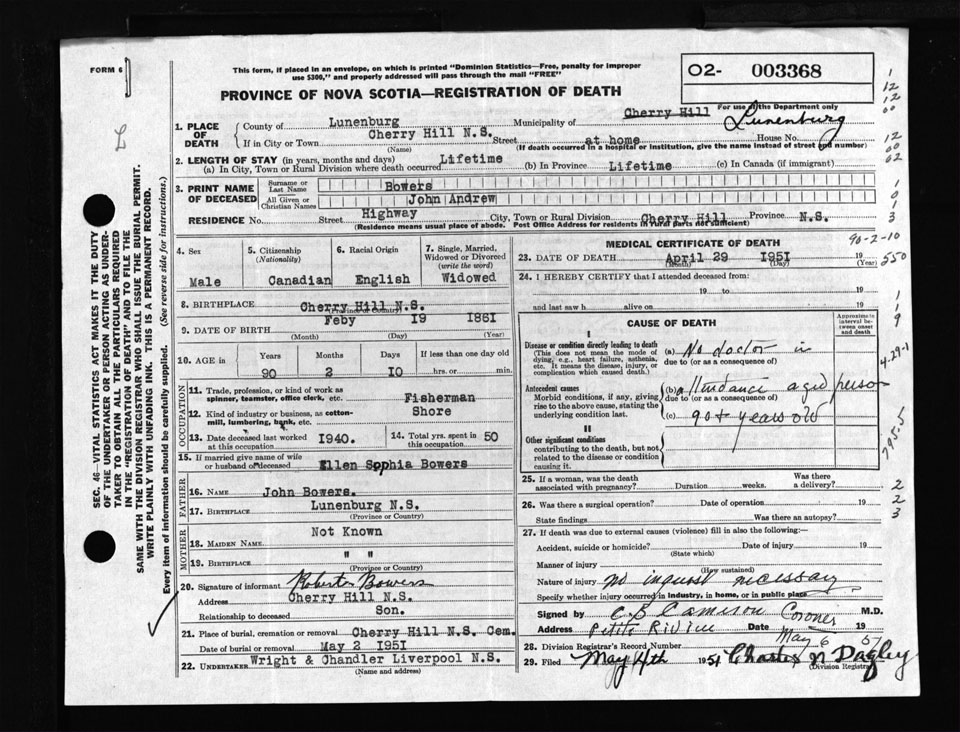 FORM 6
This form, if placed in an envelope, on which is printed "Dominion Statistics—Free, penalty for improper
use $300," and properly addressed will pass through the mail "FREE"
O2- 003368
PROVINCE OF NOVA SCOTIA—REGISTRATION OF DEATH
For use of the Department only
L
1. PLACE OF DEATH
County of Lunenburg Municipality of Cherry Hill Lunenburg
If in City or Town Cherry Hill N.S. Street at home House No.
(Name) (If death occurred in a hospital or institution, give the name instead of street and number)
2. LENGTH OF STAY (in years, months and days)
(a) In City, Town or Rural Division where death occurred Lifetime (b) In Province Lifetime (c) In Canada (if immigrant)
3. PRINT NAME OF DECEASED
Surname or Last Name Bowers
All Given or Christian Names John Andrew
RESIDENCE No. Street Highway City, Town or Rural Division Cherry Hill Province N.S.
(Residence means usual place of abode. Post Office Address for residents in rural parts not sufficient)
4. Sex Male
5. Citizenship (Nationality) Canadian
6. Racial Origin English
7. Single, Married, Widowed or Divorced (write the word) Widowed
8. BIRTHPLACE Cherry Hill N.S.
(Province or Country)
9. DATE OF BIRTH Feby I9 I86I
(Month) (Day) (Year)
10. AGE IN Years Months Days If less than one day old
90 2 IO hrs. or min.
OCCUPATION
11. Trade, profession, or kind of work as spinner, teamster, office clerk, etc. Fisherman
12. Kind of industry or business, as cotton-mill, lumbering, bank, etc. Shore
13. Date deceased last worked at this occupation I940.
14. Total yrs. spent in this occupation 50
15. If married give name of wife or husband of deceased Ellen Sophia Bowers
FATHER
16. NAME John Bowers.
17. BIRTHPLACE Lunenburg N.S.
(Province or Country)
MOTHER
18. MAIDEN NAME Not Known
19. BIRTHPLACE " "
(Province or Country)
20. Signature of informant Roberto Bowers
Address Cherry Hill N.S.
Relationship to deceased Son.
21. Place of burial, cremation or removal Cherry Hill N.S. Cem.
Date of burial or removal May 2 I95I
22. UNDERTAKER Wright & Chandler Liverpool N.S.
(Name and address)
MEDICAL CERTIFICATE OF DEATH
23. DATE OF DEATH April 29 I95I 19
(Month) (Day) (Year)
24. I HEREBY CERTIFY that I attended deceased from:
19 to 19
and last saw h alive on 19
CAUSE OF DEATH
Approximate interval between onset and death
I
Disease or condition directly leading to death
(This does not mean the mode of dying, e.g., heart failure, asthenia, etc. It means the disease, injury, or complication which caused death.)
(a) No doctor in
due to (or as a consequence of)
Antecedent causes
Morbid conditions, if any, giving rise to the above cause, stating the underlying condition last.
(b) attendance aged person
due to (or as a consequence of)
(c) 90+ years old
II
Other significant conditions
contributing to the death, but not related to the disease or condition causing it.
25. If a woman, was the death associated with pregnancy? Duration weeks. Was there a delivery?
26. Was there a surgical operation? Date of operation 19
State findings Was there an autopsy?
27. If death was due to external causes (violence) fill in also the following:—
Accident, suicide or homicide? Date of injury 19
(State which)
Manner of injury
(How sustained)
Nature of injury No inquest necessary
Specify whether injury occurred in industry, in home, or in public place
Signed by C B Cameron Coroner M.D.
Address Petite Riviere Date May 6 19 51
28. Division Registrar's Record Number
29. Filed May 4th 1951 Charles N Dagley
(Division Registrar)
SEC. 46—VITAL STATISTICS ACT MAKES IT THE DUTY
OF THE UNDERTAKER OR PERSON ACTING AS UNDER-
TAKER TO OBTAIN ALL THE PARTICULARS REQUIRED
IN THE "REGISTRATION OF DEATH" AND TO FILE THE
SAME WITH THE DIVISION REGISTRAR WHO SHALL ISSUE THE BURIAL PERMIT.
WRITE PLAINLY WITH UNFADING INK. THIS IS A PERMANENT RECORD.
Every item of information should be carefully supplied. (See reverse side for instructions.)
1
12
12
00
12
00
02
1
0
1
3
90-2-10
550
1
1
9
4-29-1
795.5
2
2
3